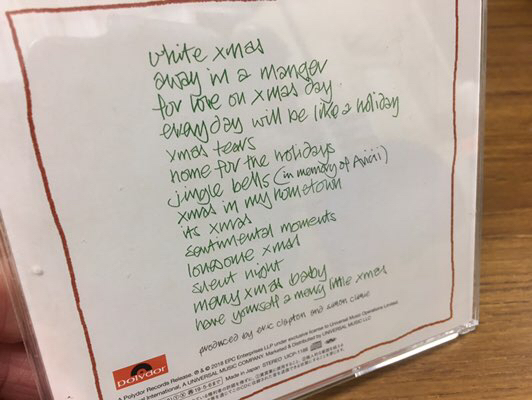 white xmas
away in a manger
for love on xmas day
everyday will be like a holiday
xmas tears
home for the holidays
jingle bells (in memory of Avicii)
xmas in my hometown
its xmas
sentimental moments
lonesome xmas
silent night
merry xmas baby
have yourself a merry little xmas
produced by eric clapton and simon climie
polydor
A Polydor Records Release. ℗ & © 2018 EPC Enterprises LLP under exclusive license to Universal Music Operations Limited.
al, A UNIVERSAL MUSIC COMPANY. Marketed & Distributed by UNIVERSAL MUSIC LLC
Made in Japan STEREO UICP-1186